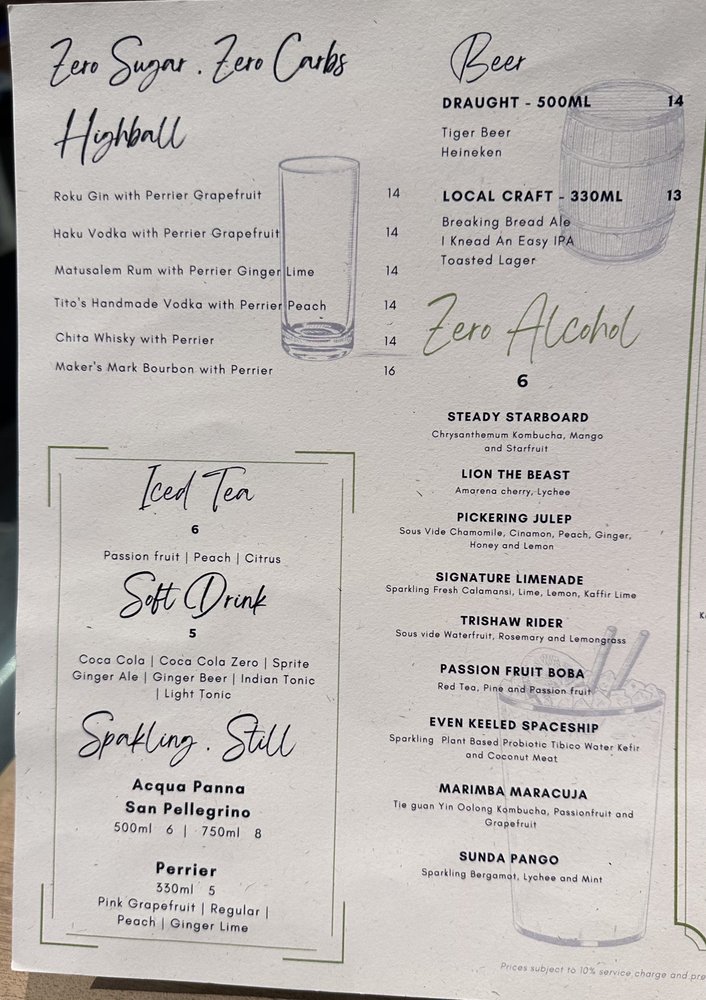 Zero Sugar . Zero Carbs
Highball
Roku Gin with Perrier Grapefruit 14
Haku Vodka with Perrier Grapefruit 14
Matusalem Rum with Perrier Ginger Lime 14
Tito's Handmade Vodka with Perrier Peach 14
Chita Whisky with Perrier 14
Maker's Mark Bourbon with Perrier 16
Iced Tea
6
Passion fruit | Peach | Citrus
Soft Drink
5
Coca Cola | Coca Cola Zero | Sprite
Ginger Ale | Ginger Beer | Indian Tonic
| Light Tonic
Spakling . Still
Acqua Panna
San Pellegrino
500ml 6 | 750ml 8
Perrier
330ml 5
Pink Grapefruit | Regular |
Peach | Ginger Lime
Beer
DRAUGHT - 500ML 14
Tiger Beer
Heineken
LOCAL CRAFT - 330ML 13
Breaking Bread Ale
I Knead An Easy IPA
Toasted Lager
Zero Alcohol
6
STEADY STARBOARD
Chrysanthemum Kombucha, Mango
and Starfruit
LION THE BEAST
Amarena cherry, Lychee
PICKERING JULEP
Sous Vide Chamomile, Cinamon, Peach, Ginger,
Honey and Lemon
SIGNATURE LIMENADE
Sparkling Fresh Calamansi, Lime, Lemon, Kaffir Lime
TRISHAW RIDER
Sous vide Waterfruit, Rosemary and Lemongrass
PASSION FRUIT BOBA
Red Tea, Pine and Passion fruit
EVEN KEELED SPACESHIP
Sparkling Plant Based Probiotic Tibico Water Kefir
and Coconut Meat
MARIMBA MARACUJA
Tie guan Yin Oolong Kombucha, Passionfruit and
Grapefruit
SUNDA PANGO
Sparkling Bergamot, Lychee and Mint
Prices subject to 10% service charge and pre